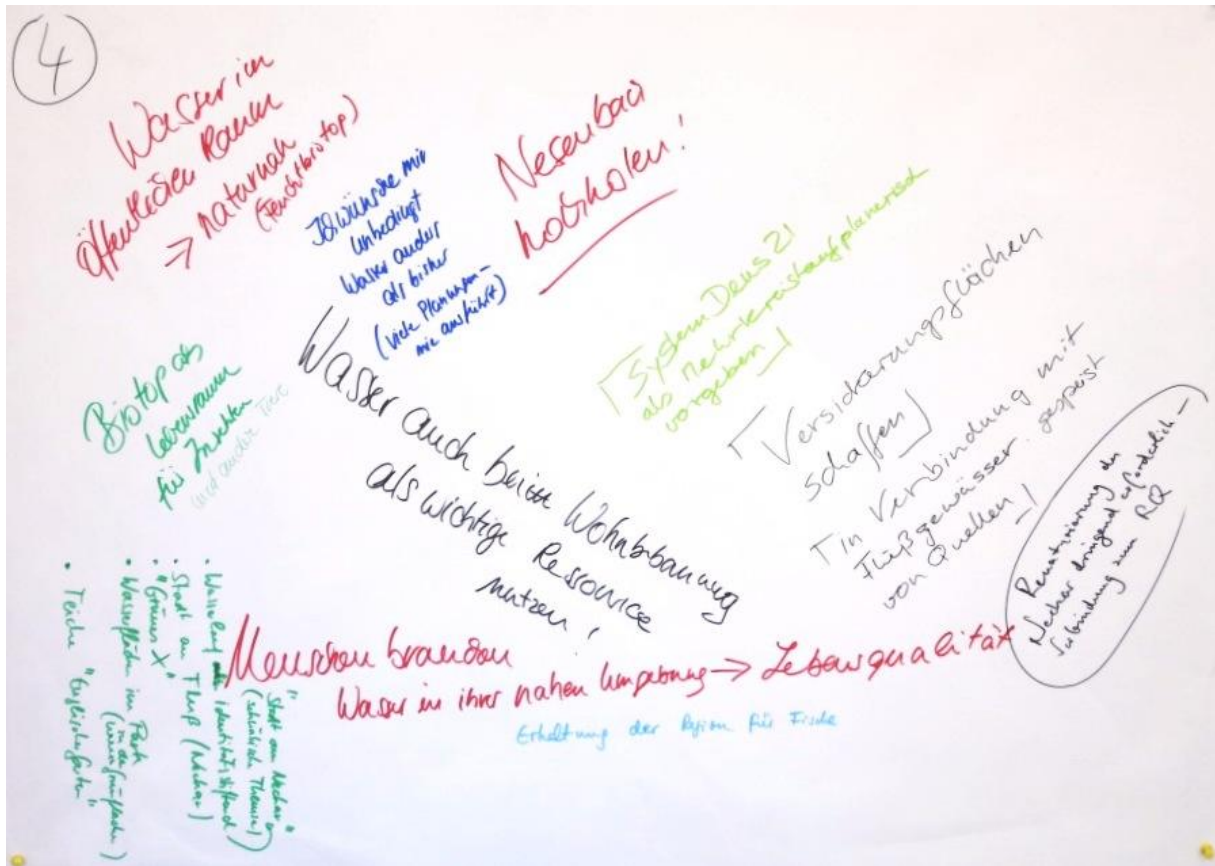 4
Wasser im
öffentlichen Raum
→ naturnah
(Feuchtbiotop)
Ich wünsche mir
unbedingt
Wasser anders
als bisher
(viele Planungen –
nie ausgeführt)
Nesenbach
hochholen!
System Deus 21
als Mehrkreislauf planerisch
vorgeben
Versickerungsflächen
schaffen
in Verbindung mit
Fließgewässer gespeist
von Quellen
Renaturierung des
Neckar dringend erforderlich –
zum RQ
Biotop als
Lebensraum
für Insekten
und andere Tiere
Wasser auch beim Wohnbebauung
als wichtige Ressource
nutzen!
Menschen brauchen
Wasser in ihrer nahen Umgebung → Lebensqualität
Erhaltung der Region für Fische
"Stadt am Neckar"
(Themse)
• identitätsstiftend)
• Stadt am Fluß (Neckar)
• "Grünes X"
• Wasserflächen im Park
in den
• Teiche "Englischer Garten"